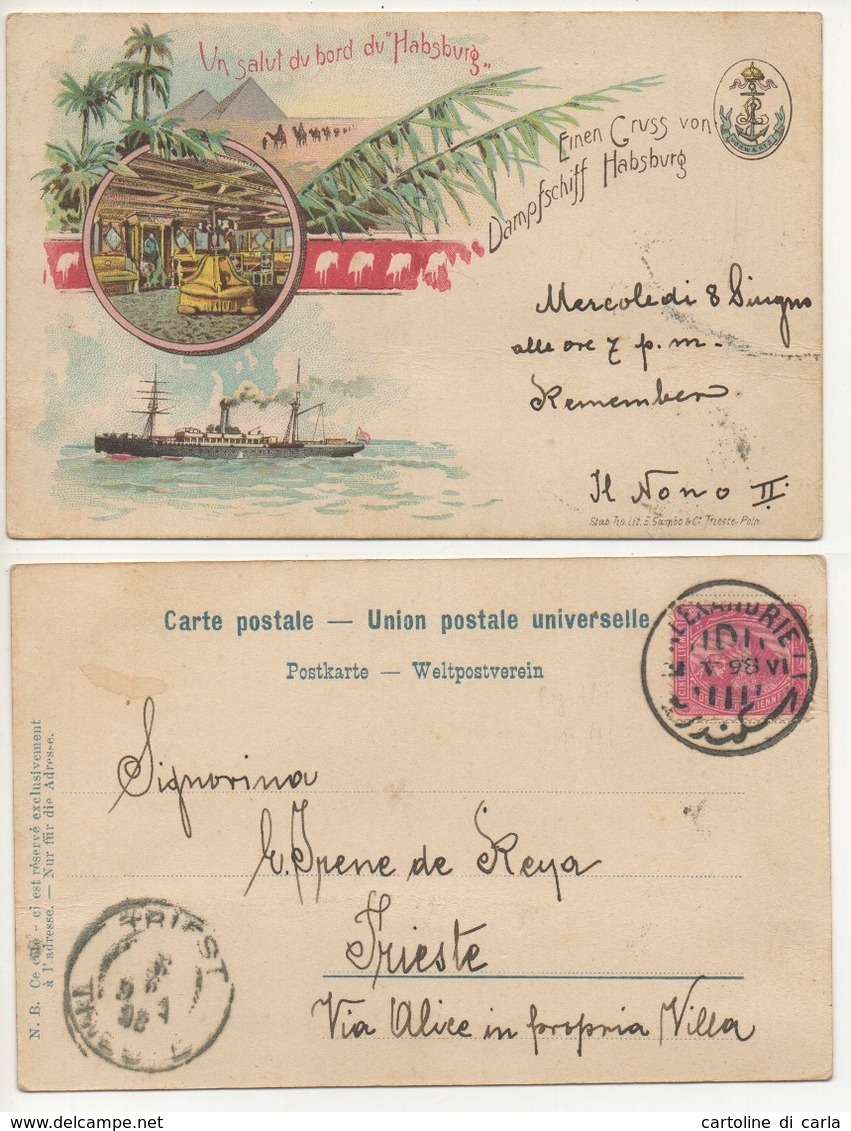 Un salut du bord du "Habsburg"
Einen Gruss von
Dampfschiff Habsburg
VORWÄRTS
Mercoledi 8 Giugno
alle ore 7 p.m.
Remember
Il Nono II.
Stab. Tip. Lit. E. Sambo & Cᵒ. Trieste-Pola.
Carte postale — Union postale universelle
Postkarte — Weltpostverein
ALEXANDRIE
VI 98
Signorina
Irene de Reya
Trieste
Via Alice in propria Villa
N. B. Ce côté-ci est réservé exclusivement
à l'adresse. — Nur für die Adresse.
TRIEST
TRIEST
delcampe.net
cartoline di carla